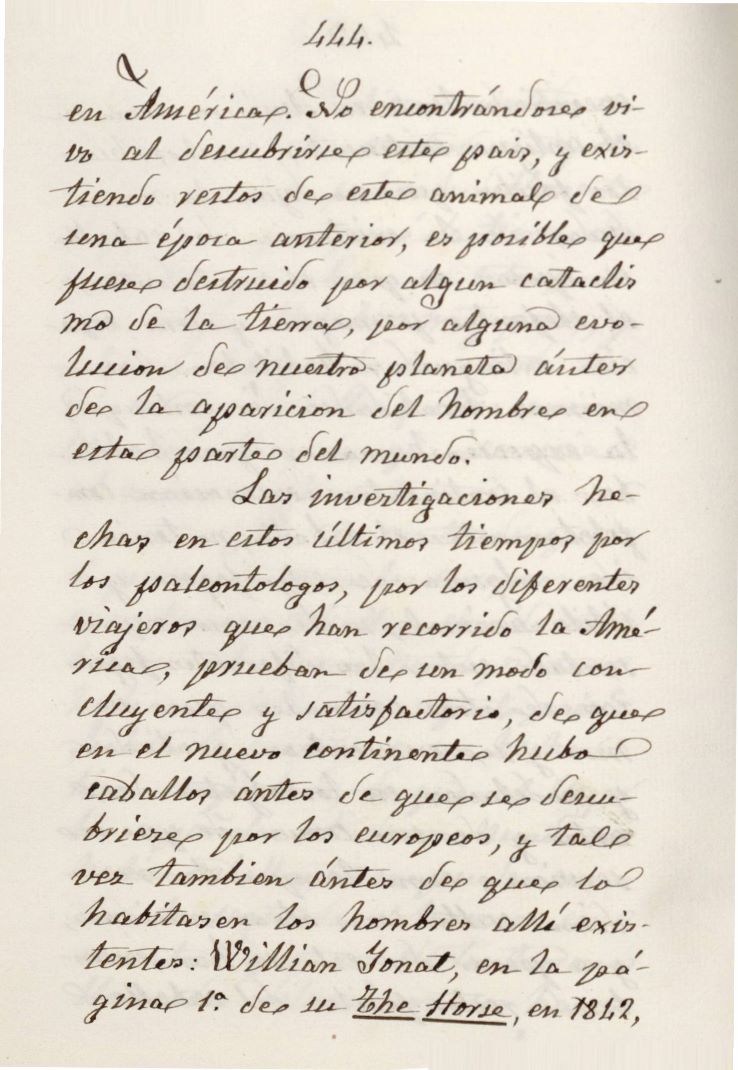 444.
en América. No encontrándose vi-
vo al descubrirse este pais, y exis-
tiendo restos de este animal de
una época anterior, es posible que
fuese destruido por algun cataclis
mo de la tierra, por alguna evo-
lucion de nuestro planeta ántes
de la aparicion del hombre en
esta parte del mundo.
Las investigaciones he-
chas en estos últimos tiempos por
los paleontologos, por los diferentes
viajeros que han recorrido la Amé-
rica, prueban de un modo con-
cluyente y satisfactorio, de que
en el nuevo continente hubo
caballos ántes de que se descu-
briese por los europeos, y tal
vez tambien ántes de que lo
habitasen los hombres allí exis-
tentes: Willian Jonat, en la pá-
gina 1.ª de su The Horse, en 1842,